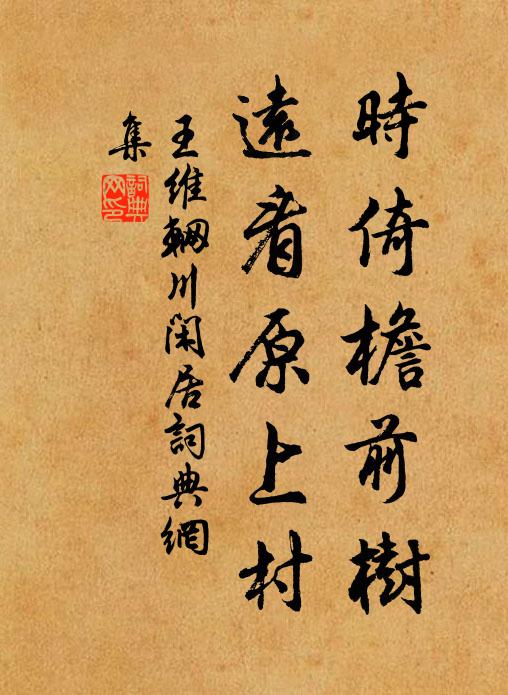 時倚檐前樹
遠看原上村
王維輞川閑居詞典網
集
詞典网印